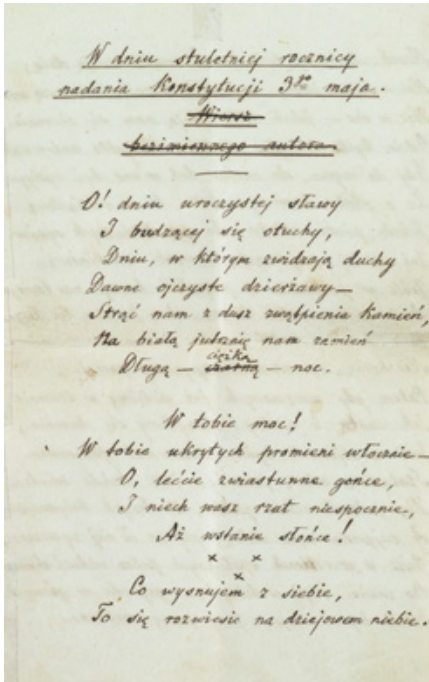 W dniu stuletniej rocznicy
nadania Konstytucji 3go maja.
Wiersz
bezimiennego autora.
O! dniu uroczystej sławy
I budzącej się otuchy,
Dniu, w którym zwidzają duchy
Dawne ojczyste dzierżawy —
Strąć nam z dusz zwątpienia kamień,
Na białą jutrznię nam zamień
ciężką
Długą — czarną — noc.
W tobie moc!
W tobie ukrytych promieni włócznie —
O, lećcie zwiastunne gońce,
I niech wasz rzut niespocznie,
Aż wstanie słońce!
× ×
×
Co wysnujem z siebie,
To się rozwiesie na dziejowem niebie.